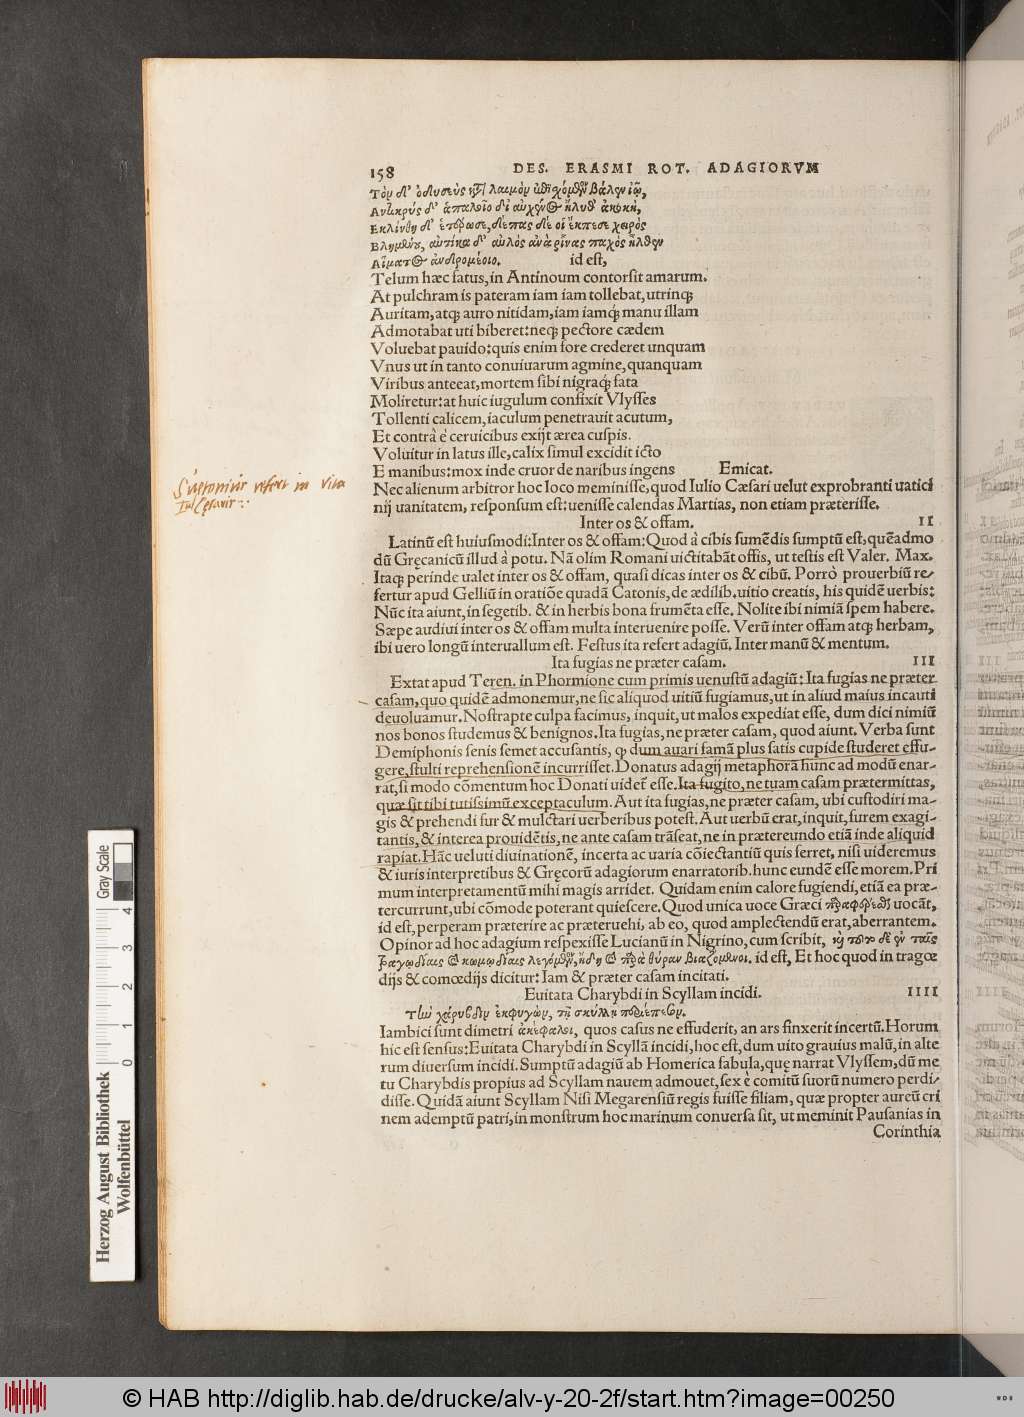 158 DES. ERASMI ROT. ADAGIORVM
Τὸν δ' ὀδυσεὺς κατὰ λαιμὸν ἐπισχόμενος βάλεν ἰῷ,
Αντικρὺς δ' ἁπαλοῖο δι' αὐχένος ἤλυθ' ἀκωκή,
Εκλίνθη δ' ἑτέρωσε, δέπας δέ οἱ ἔκπεσε χειρὸς
Βλημένου, αὐτίκα δ' αὐλὸς ἀνὰ ῥῖνας παχὺς ἦλθεν
Αἵματος ἀνδρομέοιο. id est,
Telum hæc fatus, in Antinoum contorsit amarum.
At pulchram is pateram iam iam tollebat, utrinq;
Auritam, atq; auro nitidam, iam iamq́; manu illam
Admotabat uti biberet: neq; pectore cædem
Voluebat pauido: quis enim fore crederet unquam
Vnus ut in tanto conuiuarum agmine, quanquam
Viribus anteeat, mortem sibi nigraq́; fata
Moliretur: at huic iugulum confixit Vlysses
Tollenti calicem, iaculum penetrauit acutum,
Et contrà è ceruicibus exijt ærea cuspis.
Voluitur in latus ille, calix simul excidit icto
E manibus: mox inde cruor de naribus ingens Emicat.
Suetonius refert in vita
Iul. Cęsaris:
Nec alienum arbitror hoc loco meminisse, quod Iulio Cæsari uelut exprobranti uatici
nij uanitatem, responsum est: uenisse calendas Martias, non etiam præterisse.
Inter os & offam. II
Latinũ est huiusmodi: Inter os & offam: Quod à cibis sumẽdis sumptũ est, quẽadmo
dũ Gręcanicũ illud à potu. Nã olim Romani uictitabãt offis, ut testis est Valer. Max.
Itaq; perinde ualet inter os & offam, quasi dicas inter os & cibũ. Porrò prouerbiũ re-
fertur apud Gelliũ in oratiõe quadã Catonis, de ædilib. uitio creatis, his quidẽ uerbis:
Nũc ita aiunt, in segetib. & in herbis bona frumẽta esse. Nolite ibi nimiã spem habere.
Sæpe audiui inter os & offam multa interuenire posse. Verũ inter offam atq; herbam,
ibi uero longũ interuallum est. Festus ita refert adagiũ. Inter manũ & mentum.
Ita fugias ne præter casam. III
Extat apud Teren. in Phormione cum primis uenustũ adagiũ: Ita fugias ne præter
casam, quo quidẽ admonemur, ne sic aliquod uitiũ fugiamus, ut in aliud maius incauti
deuoluamur. Nostrapte culpa facimus, inquit, ut malos expediat esse, dum dici nimiũ
nos bonos studemus & benignos. Ita fugias, ne præter casam, quod aiunt. Verba sunt
Demiphonis senis semet accusantis, ꝙ dum auari famã plus satis cupide studeret effu-
gere, stulti reprehensionẽ incurrisset. Donatus adagij metaphorã hunc ad modũ enar-
rat, si modo cõmentum hoc Donati uidet̃ esse. Ita fugito, ne tuam casam prætermittas,
quæ sit tibi tutissimũ exceptaculum. Aut ita fugias, ne præter casam, ubi custodiri ma-
gis & prehendi fur & mulctari uerberibus potest. Aut uerbũ erat, inquit, furem exagi-
tantis, & interea prouidẽtis, ne ante casam trãseat, ne in prætereundo etiã inde aliquid
rapiat. Hãc ueluti diuinationẽ, incerta ac uaria cõiectantiũ quis ferret, nisi uideremus
& iuris interpretibus & Gręcorũ adagiorum enarratorib. hunc eundẽ esse morem. Pri
mum interpretamentũ mihi magis arridet. Quidam enim calore fugiendi, etiã ea præ-
tercurrunt, ubi cõmode poterant quiescere. Quod unica uoce Græci παραφέρεσθαι uocãt,
id est, perperam præterire ac præteruehi, ab eo, quod amplectendũ erat, aberrantem.
Opinor ad hoc adagium respexisse Lucianũ in Nigrino, cum scribit, καὶ τοῦτο δὲ ἐν ταῖς
τραγῳδίαις καὶ κωμῳδίαις λεγόμενον, ἤδη καὶ παρὰ θύραν βιαζόμενοι. id est, Et hoc quod in tragœ
dijs & comœdijs dicitur: Iam & præter casam incitati.
Euitata Charybdi in Scyllam incidi. IIII
Τὴν χάρυβδιν ἐκφυγὼν, τῇ σκύλλῃ περιέπεσον.
Iambici sunt dimetri ἀκέφαλοι, quos casus ne effuderit, an ars finxerit incertũ. Horum
hic est sensus: Euitata Charybdi in Scyllã incidi, hoc est, dum uito grauius malũ, in alte
rum diuersum incidi. Sumptũ adagiũ ab Homerica fabula, quę narrat Vlyssem, dũ me
tu Charybdis propius ad Scyllam nauem admouet, sex è comitũ suorũ numero perdi-
disse. Quidã aiunt Scyllam Nisi Megarensiũ regis fuisse filiam, quæ propter aureũ cri
nem ademptũ patri, in monstrum hoc marinum conuersa sit, ut meminit Pausanias in
Corinthia
Gray Scale
0 1 2 3 4
Herzog August Bibliothek
Wolfenbüttel
© HAB http://diglib.hab.de/drucke/alv-y-20-2f/start.htm?image=00250